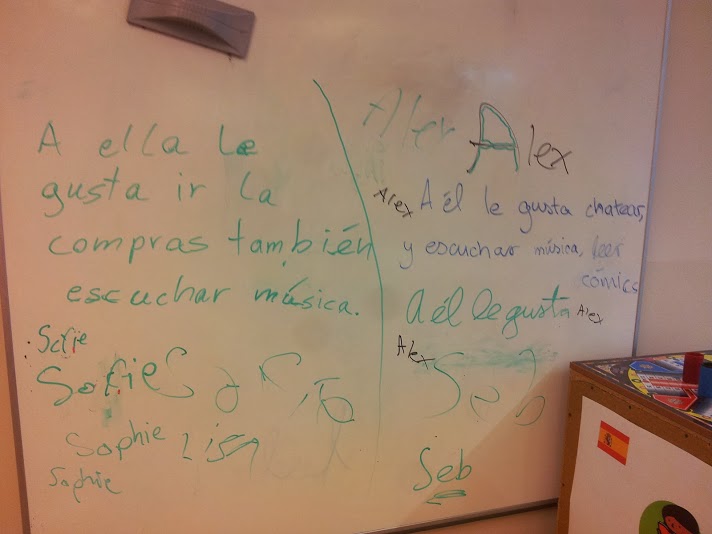 A ella le
gusta ir la
compras también
escuchar música.
Sofie
Sofie
Sophie Lisa
Sophie
Alex
Alex
Alex A él le gusta chatear,
y escuchar música, leer
cómics
A él le gusta Alex
Alex
Seb
Seb